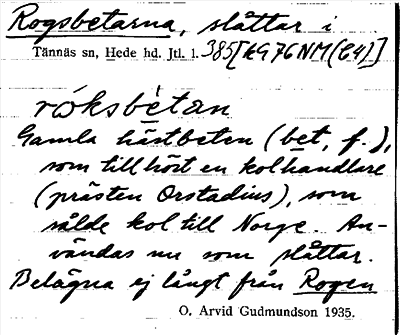 Rogsbetarna, slåttar i
Tännäs sn, Hede hd. Jtl. l. 385[kG76NM(C4)]
røksbètan
Gamla hästbeten (bet, f.),
som tillhört en kolhandlare
(prästen Orstadius), som
sålde kol till Norge. An-
vändas nu som slåttar.
Belägna ej långt från Rogen
O. Arvid Gudmundson 1935.